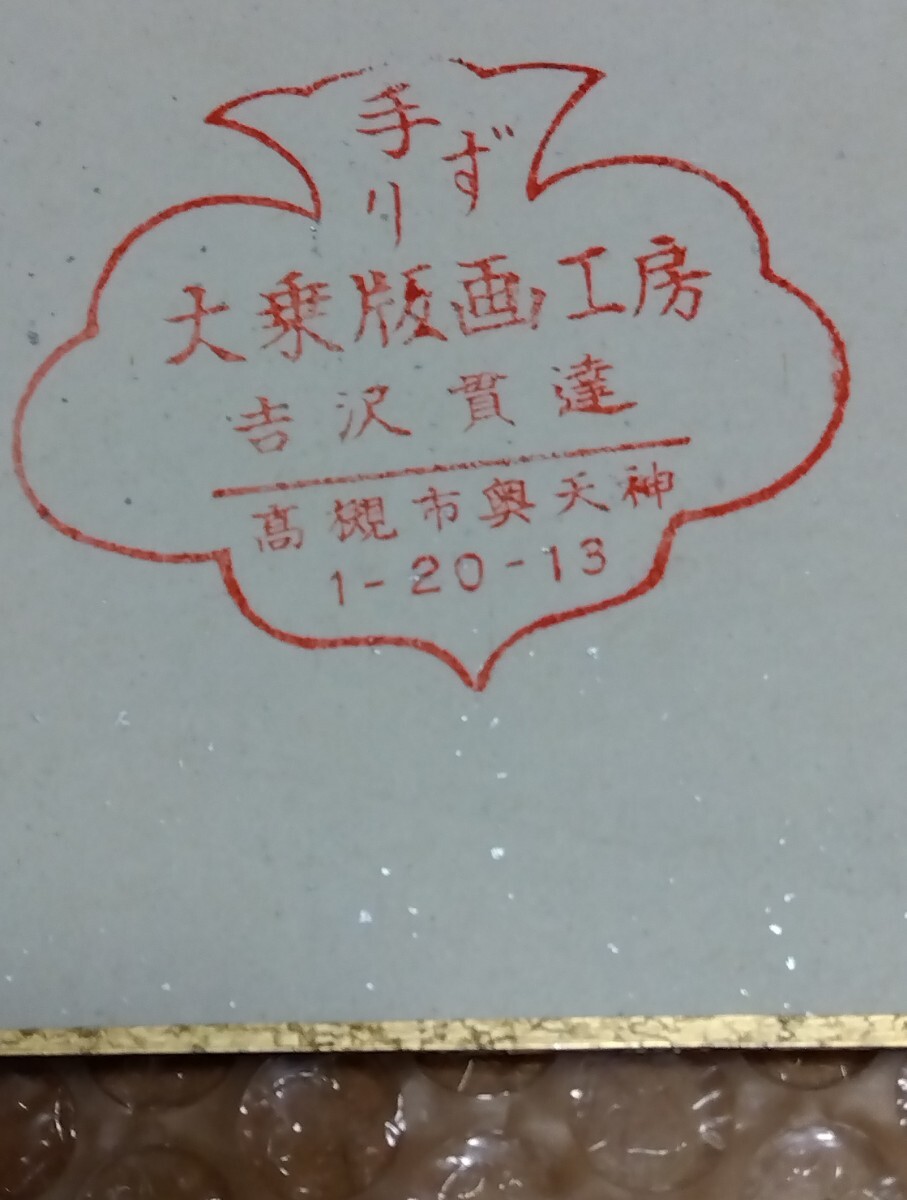 手ずり
大乗版画工房
吉沢貫達
高槻市奥天神
1-20-13